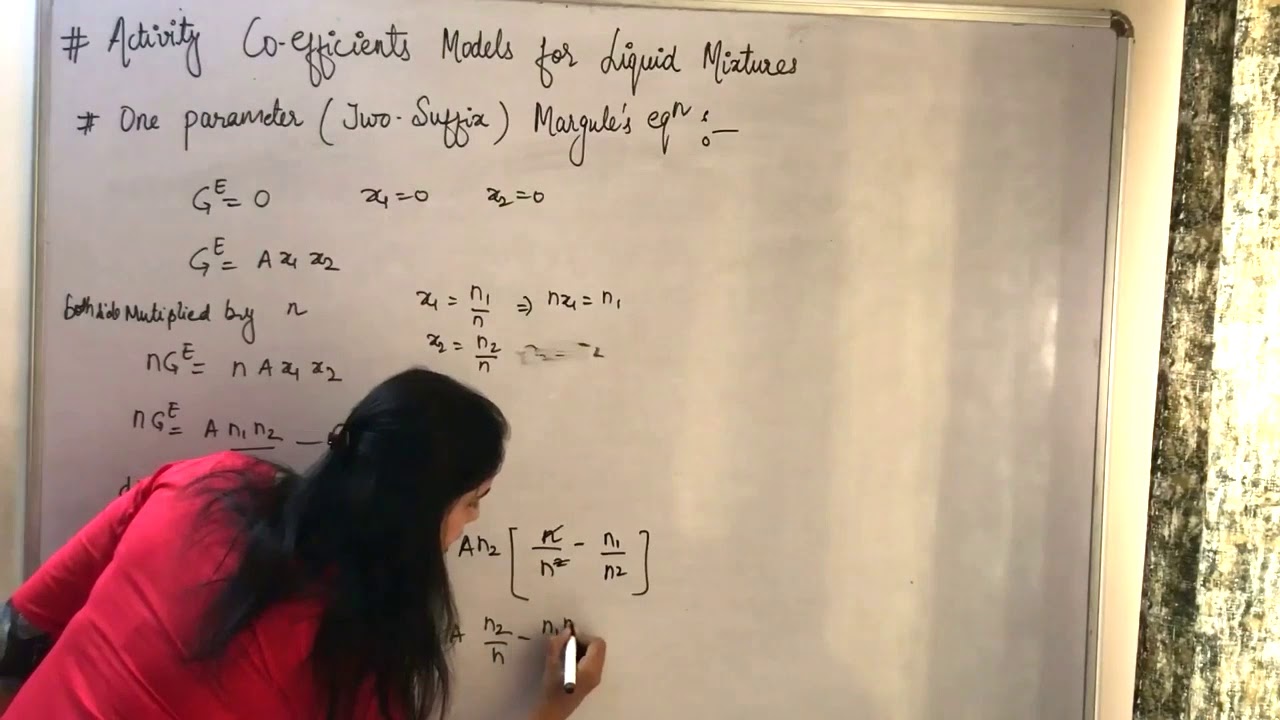 # Activity Co-efficients Models for Liquid Mixtures
# One parameter (Two-Suffix) Margule's eqⁿ :—
Gᴱ = 0 x₁ = 0 x₂ = 0
Gᴱ = A x₁ x₂
both side Mutiplied by n
x₁ = n₁/n ⇒ nx₁ = n₁
x₂ = n₂/n
nGᴱ = n A x₁ x₂
nGᴱ = A n₁n₂ —
An₂ [ n/n² - n₁/n2 ]
A n₂/n - n₁n